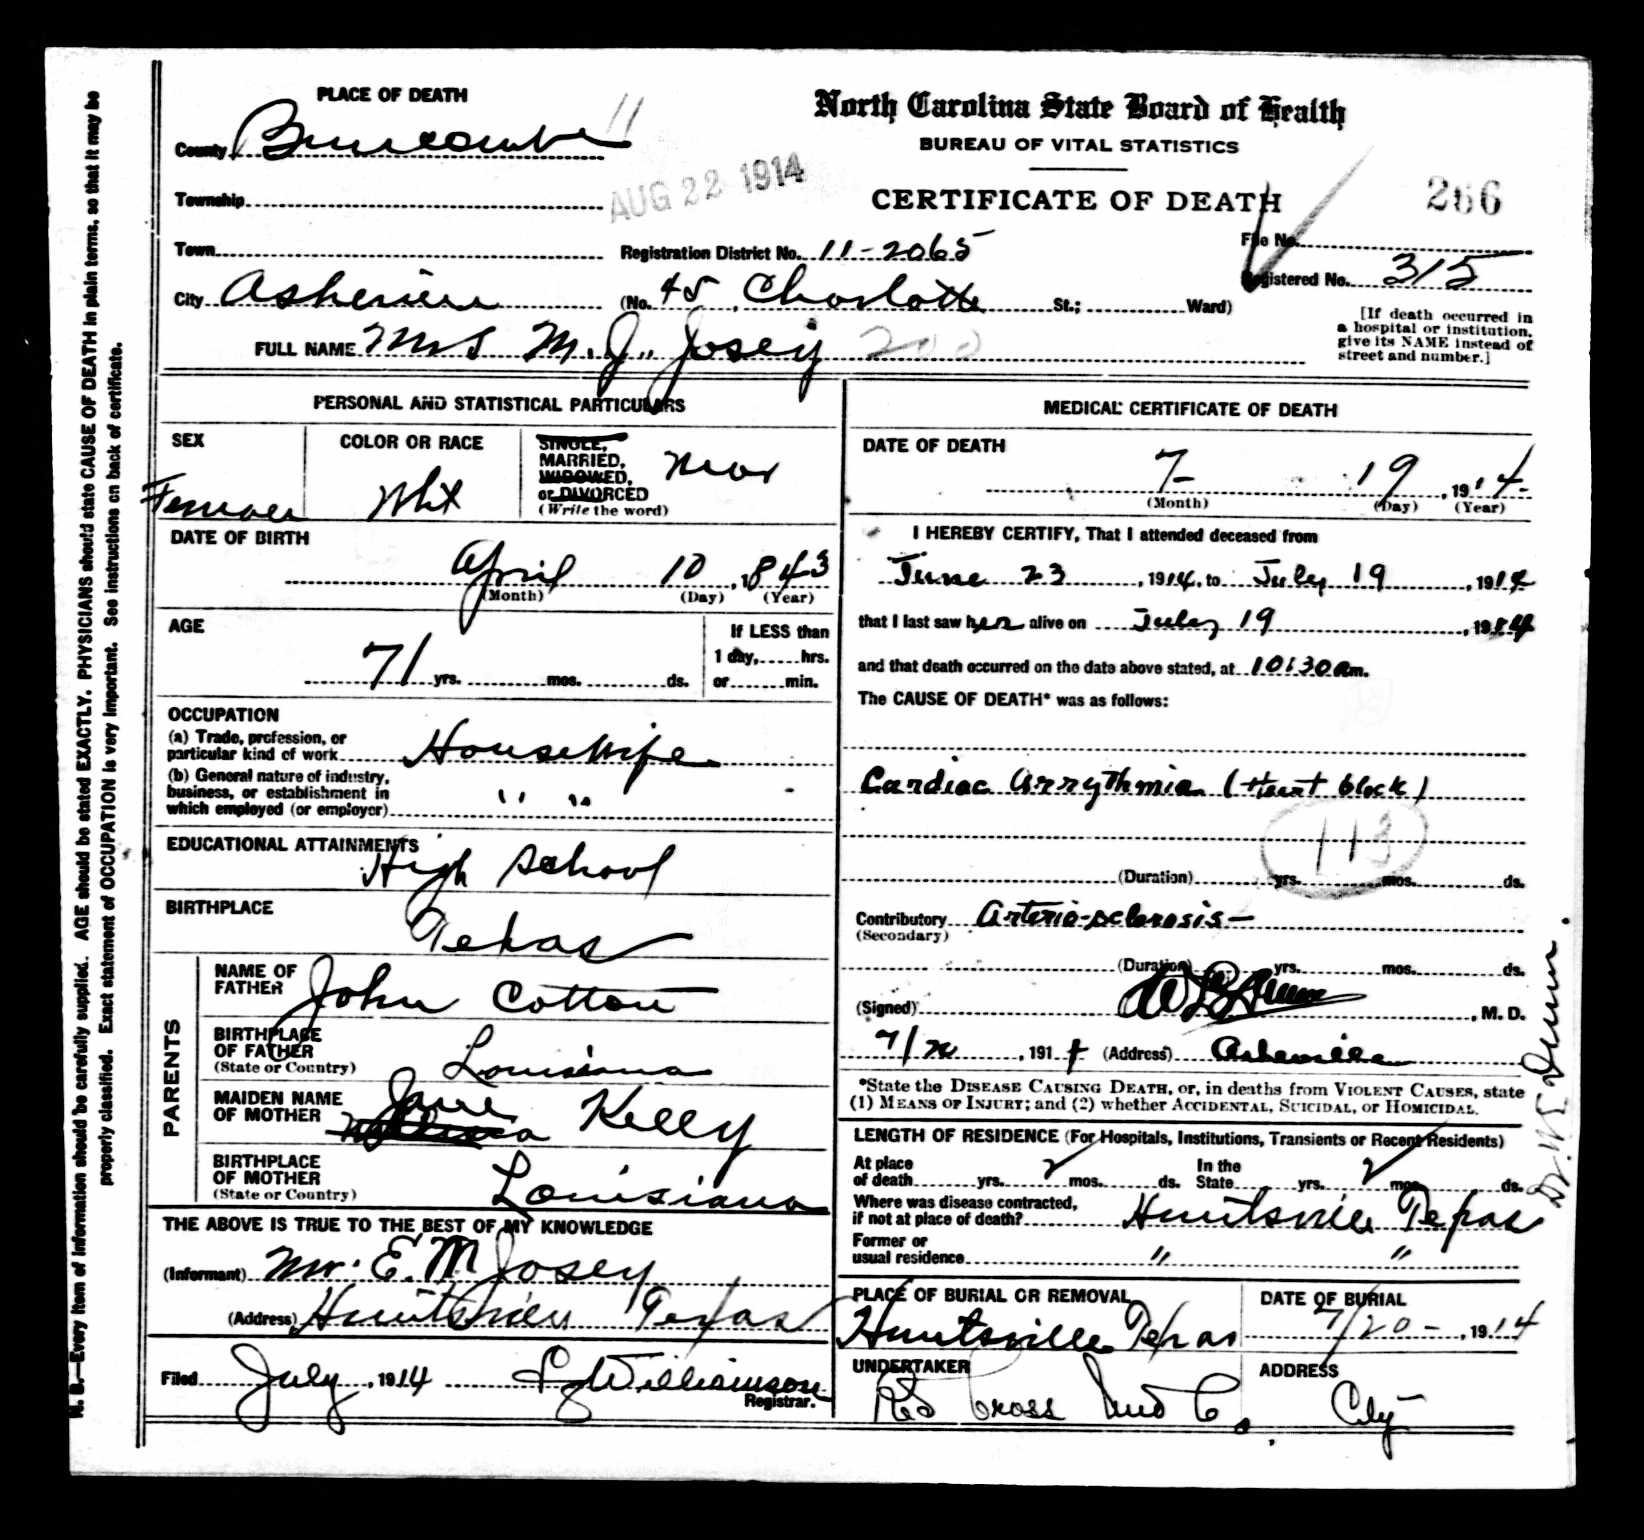 N. B.—Every item of information should be carefully supplied. AGE should be stated EXACTLY. PHYSICIANS should state CAUSE OF DEATH in plain terms, so that it may be
properly classified. Exact statement of OCCUPATION is very important. See instructions on back of certificate.
PLACE OF DEATH
County Buncombe 11
Township
Town
City Asheville
AUG 22 1914
North Carolina State Board of Health
BUREAU OF VITAL STATISTICS
CERTIFICATE OF DEATH
266
Registration District No. 11-2065
File No.
Registered No. 315
(No. 45, Charlotte St.; Ward)
[If death occurred in
a hospital or institution,
give its NAME instead of
street and number.]
FULL NAME Mrs M. J. Josey 200
PERSONAL AND STATISTICAL PARTICULARS
SEX
Female
COLOR OR RACE
Wht
SINGLE,
MARRIED,
WIDOWED,
or DIVORCED
(Write the word)
Mar
DATE OF BIRTH
April 10, 1843
(Month) (Day) (Year)
AGE
71 yrs. mos. ds.
If LESS than
1 day, hrs.
or min.
OCCUPATION
(a) Trade, profession, or
particular kind of work Housewife
(b) General nature of industry,
business, or establishment in
which employed (or employer) " "
EDUCATIONAL ATTAINMENTS
High School
BIRTHPLACE
Texas
PARENTS
NAME OF
FATHER John Cotton
BIRTHPLACE
OF FATHER
(State or Country) Louisiana
MAIDEN NAME
OF MOTHER Jane Kelly
BIRTHPLACE
OF MOTHER
(State or Country) Louisiana
THE ABOVE IS TRUE TO THE BEST OF MY KNOWLEDGE
(Informant) Mr. E. M Josey
(Address) Huntsville Texas
Filed July, 1914 Williamson
Registrar.
MEDICAL CERTIFICATE OF DEATH
DATE OF DEATH
7- 19, 1914
(Month) (Day) (Year)
I HEREBY CERTIFY, That I attended deceased from
June 23, 1914, to July 19, 1914
that I last saw her alive on July 19, 1914
and that death occurred on the date above stated, at 10:30 am.
The CAUSE OF DEATH* was as follows:
Cardiac Arrythmia (Heart block)
113
(Duration) yrs. mos. ds.
Contributory Arterio-sclerosis-
(Secondary)
(Duration) yrs. mos. ds.
(Signed) , M. D.
, 1914 (Address) Asheville
*State the DISEASE CAUSING DEATH, or, in deaths from VIOLENT CAUSES, state
(1) MEANS OF INJURY; and (2) whether ACCIDENTAL, SUICIDAL, or HOMICIDAL.
LENGTH OF RESIDENCE (For Hospitals, Institutions, Transients or Recent Residents)
At place
of death yrs. 2 mos. ds.
In the
State yrs. 2 mos. ds.
Where was disease contracted,
if not at place of death? Huntsville Texas
Former or
usual residence " "
PLACE OF BURIAL OR REMOVAL
Huntsville Texas
DATE OF BURIAL
7/20-, 1914
UNDERTAKER
Cross
ADDRESS
City